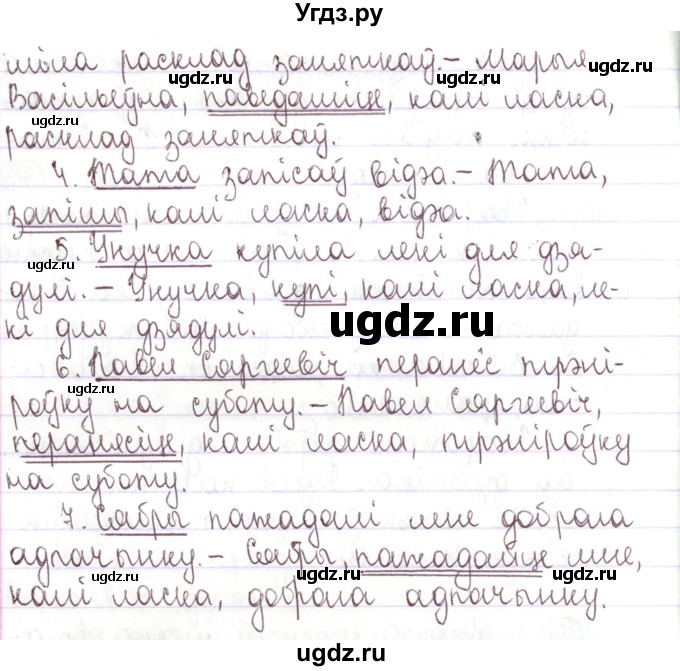 Угдз.ру
міла расклад заняткаў. – Марыя
ugdz.ru ugdz.ru ugdz.ru
Васільеўна, паведаміце, калі ласка,
расклад заняткаў.
ugdz.ru
4. Тата запісаў відэа. – Тата,
запішы, калі ласка, відэа.
5. Унучка купіла лекі для дзя-
ugdz.ru
дулі. – Унучка, купі, калі ласка, ле-
кі для дзядулі.
ugdz.ru
6. Павел Сяргеевіч перанёс трэні-
роўку на суботу. – Павел Сяргеевіч,
перанясіце, калі ласка, трэніроўку
на суботу.
ugdz.ru ugdz.ru
7. Сябры пажадалі мне добрага
адпачынку. – Сябры, пажадайце мне,
ugdz.ru ugdz.ru
калі ласка, добрага адпачынку.
ugdz.ru